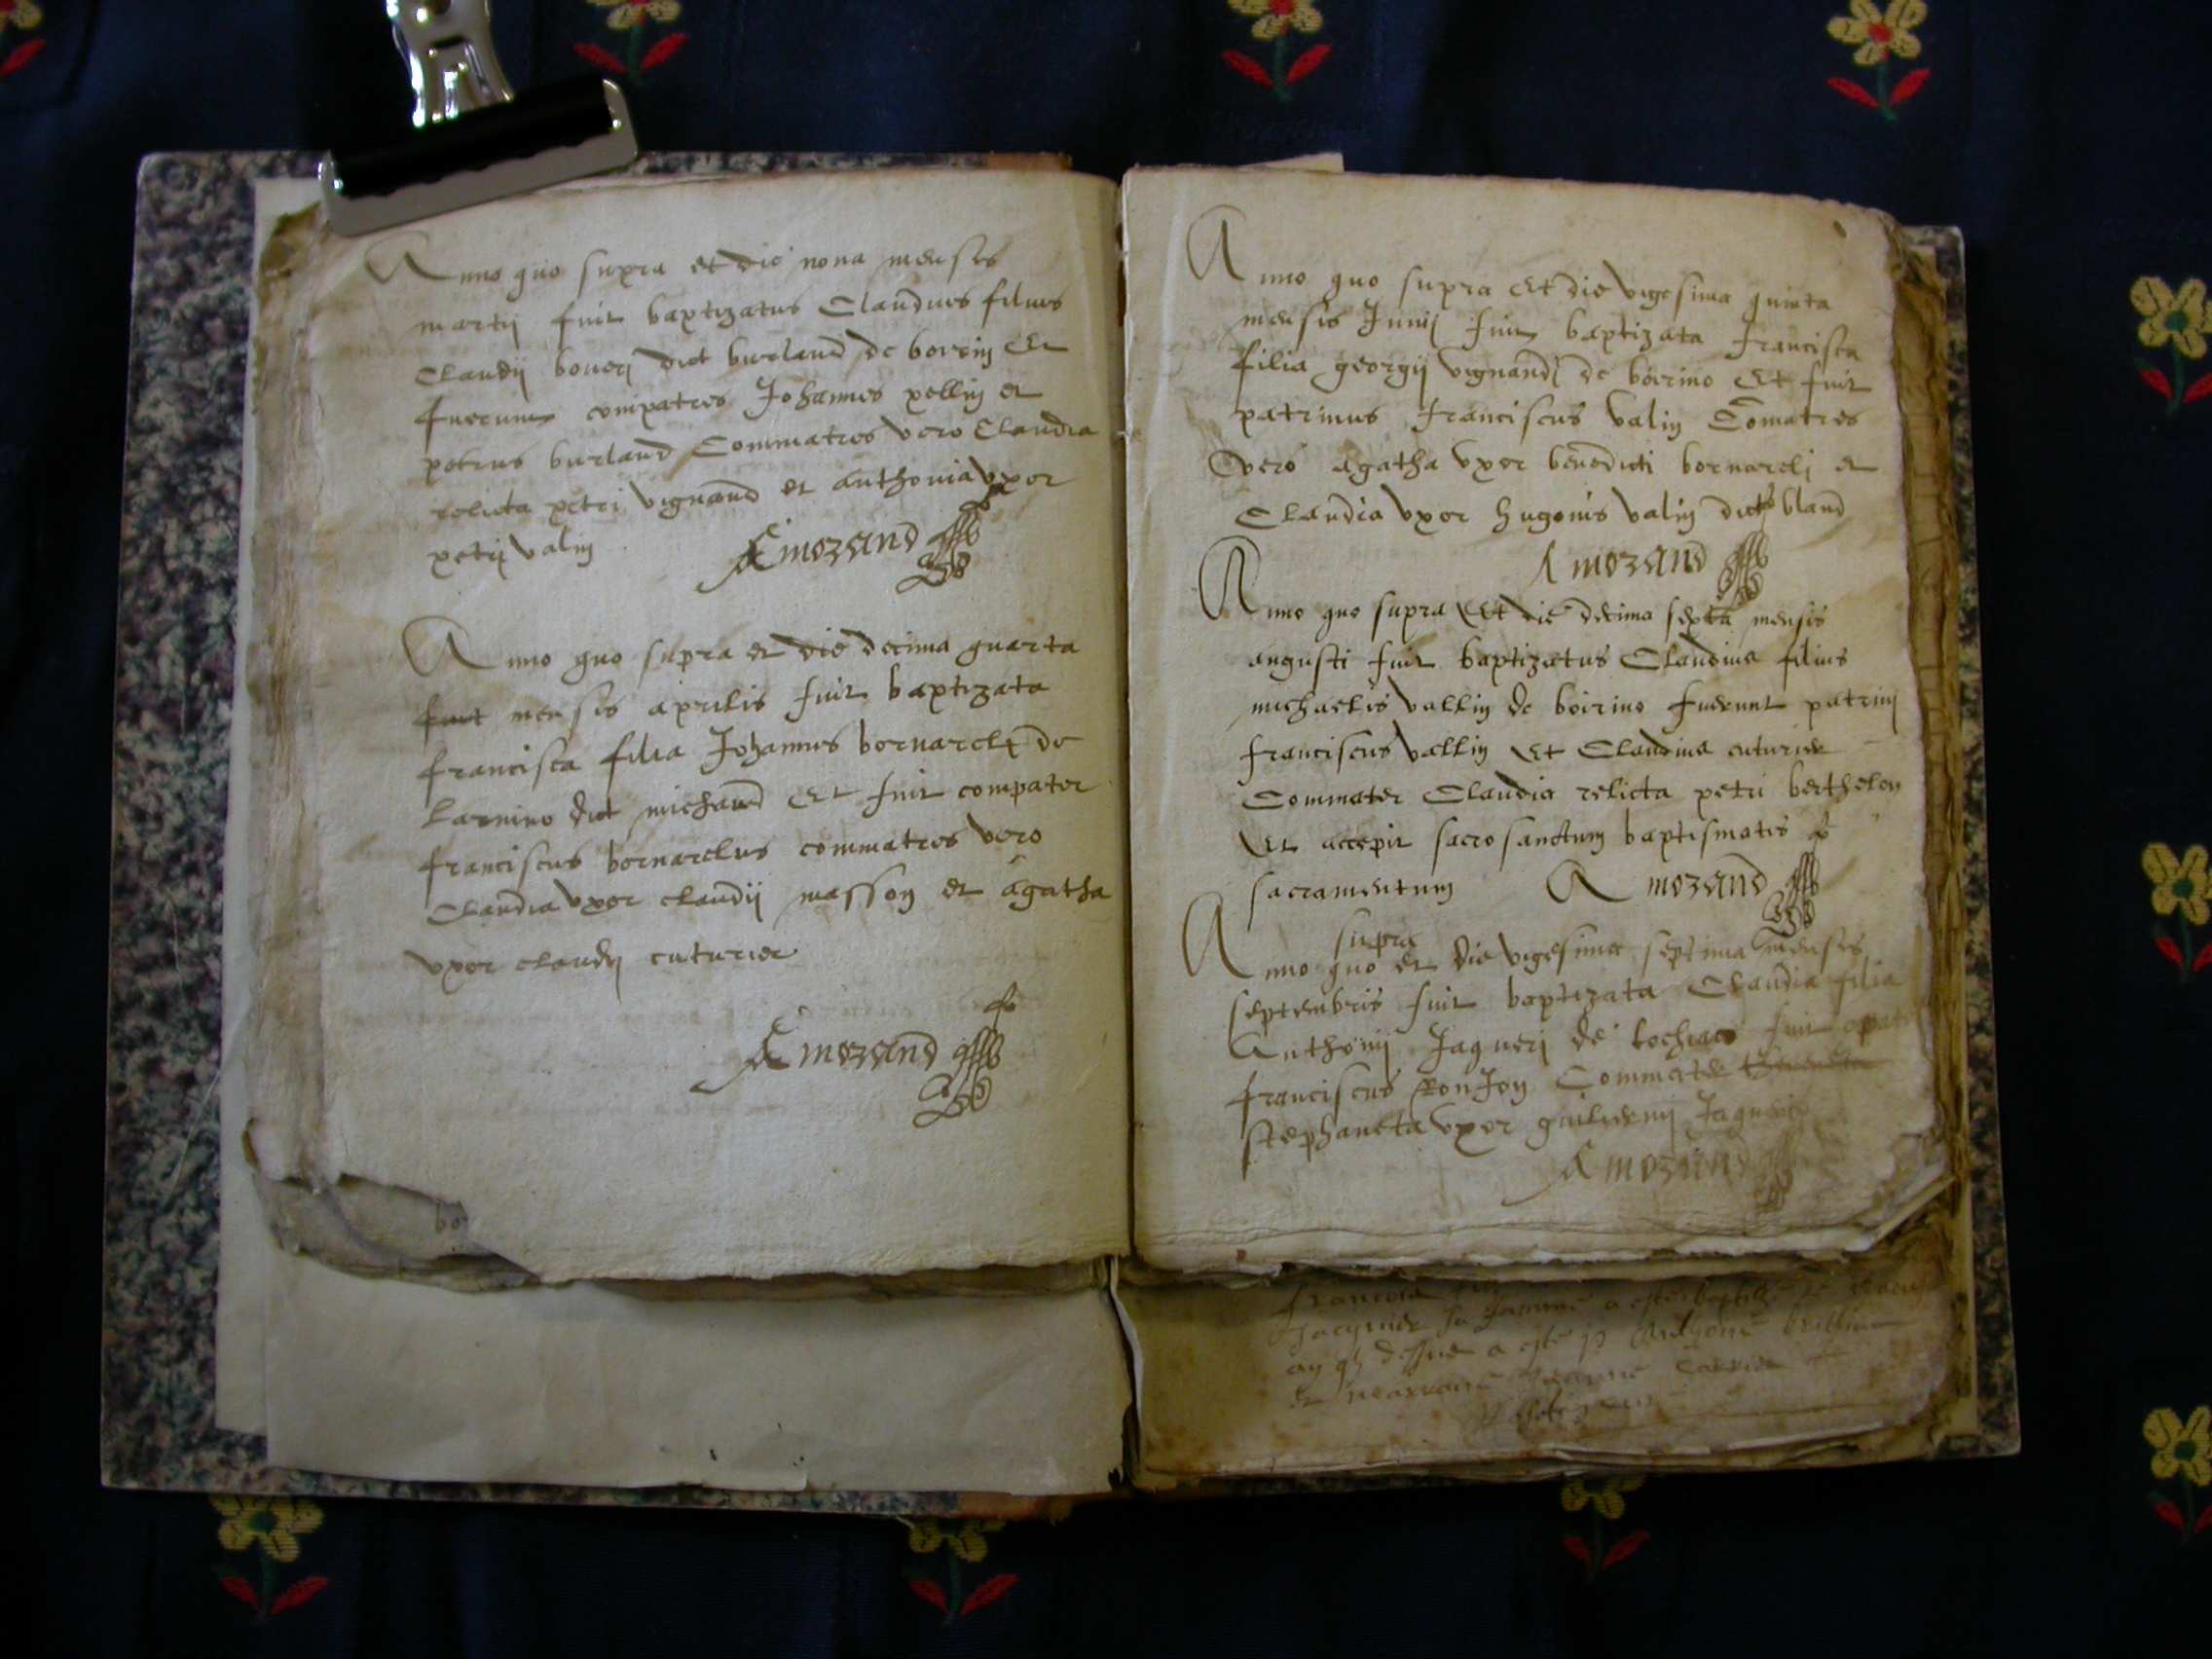 Anno quo supra et die nona mensis
martij fuit baptizatus Claudius filius
Claudij boueri dict burland de boirin Et
fuerunt compatres Johannes pellin et
petrus burland Commatres vero Claudia
relicta petri vignand et anthonia vxor
petri valin
A morand
Anno quo supra et die decima quarta
fuit mensis aprilis fuit baptizata
francisca filia Johannis bornareli de
larnino dict michaud Et fuit compater
franciscus bornarelus commatres vero
Claudia vxor claudij masson et agatha
vxor claudij cuturier
A morand
bor
Anno quo supra Et die vigesima quinta
mensis Junij fuit baptizata francisca
filia georgij vignandi de boirino Et fuit
patrinus franciscus valin Comatres
vero agatha vxor benedicti bornareli et
Claudia vxor hugonis valin dict bland
A morand
Anno quo supra Et die decima sexta mensis
augusti fuit baptizatus Claudius filius
michaelis vallin de boirino fuerunt patrini
franciscus vallin Et Claudius cuturier
Commater Claudia relicta petri berthelon
Et accepit sacro sanctum baptismatis
sacramentum A morand
supra
Anno quo et die vigesima septima mensis
septembris fuit baptizata Claudia filia
Anthonij Jaqueri de lochiaco fuit
franciscus Ronjon Commater
stephaneta vxor guilielmi Jaqueri
A morand
francoise
a este baptize
dessus a este p Anthoine
et marraine Jeanne